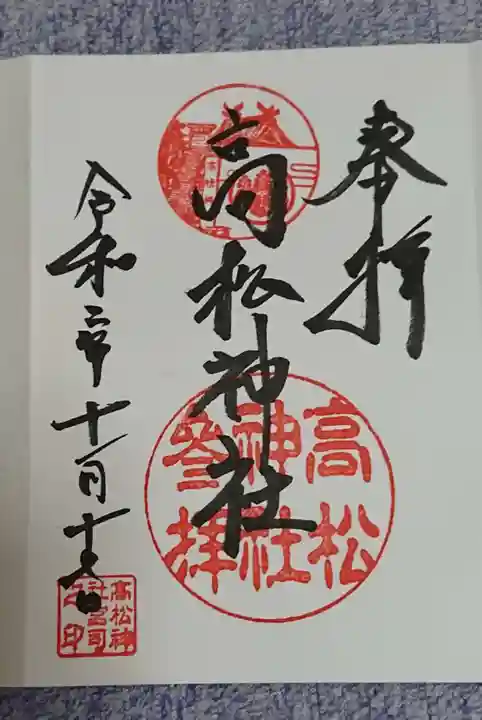 奉拝
高松神社
高松
神社
参拝
令和二年十月十六日
高松神
社宮司
之印